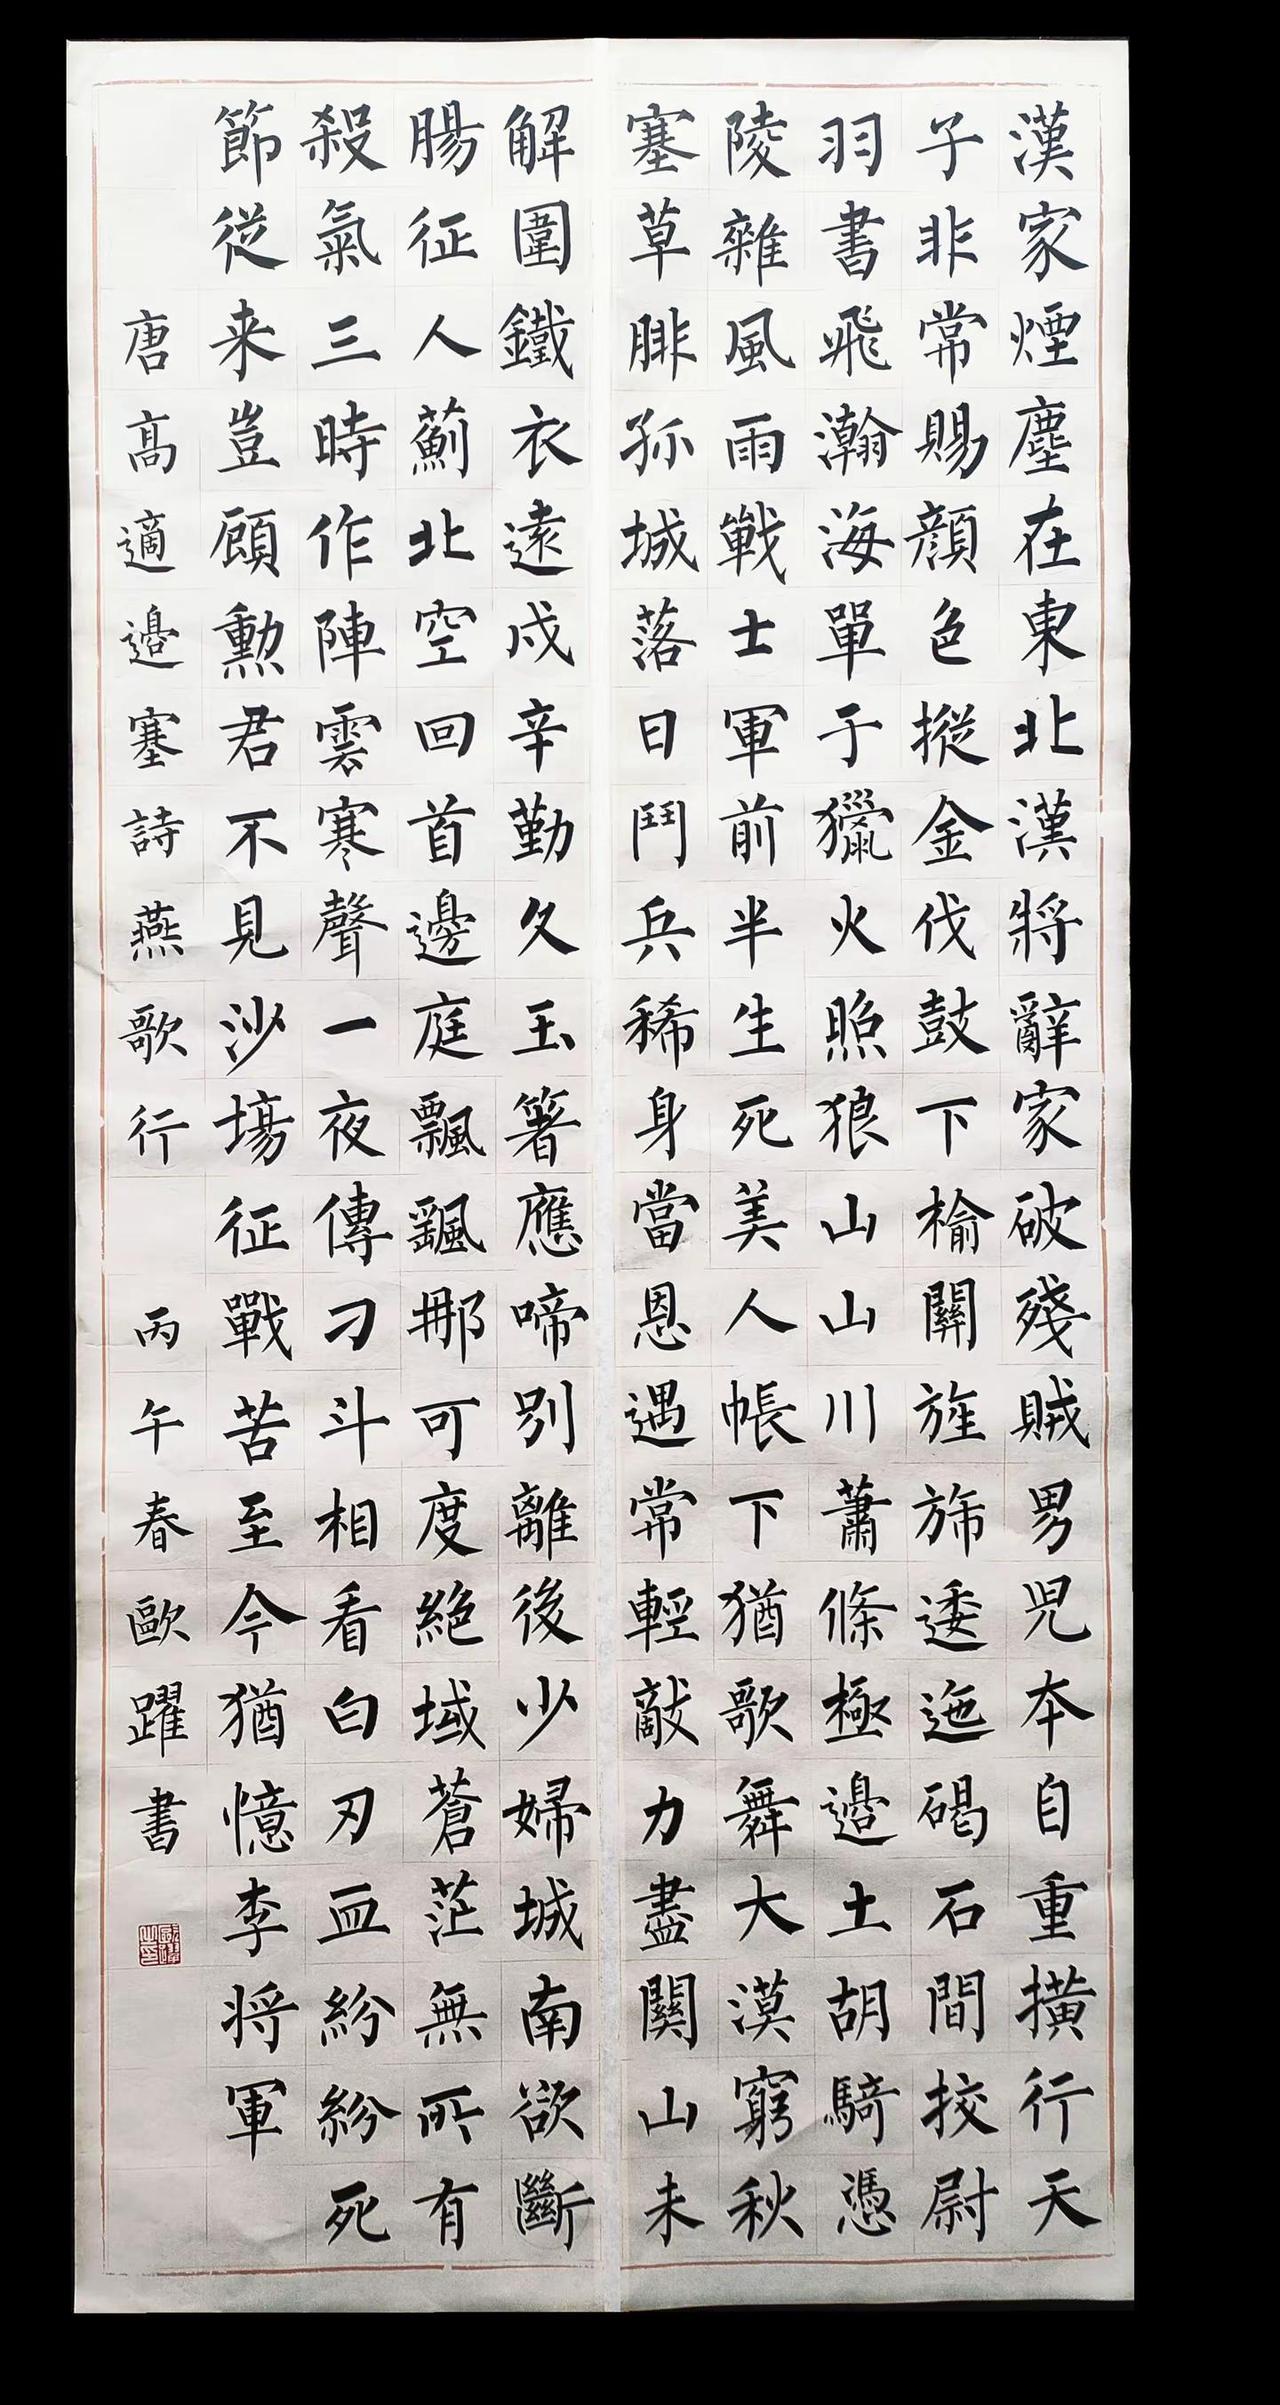 漢家煙塵在東北漢將辭家破殘賊男児本自重撗行天
子非常賜顔色摐金伐鼓下榆關旌斾逶迤碣石間挍尉
羽書飛瀚海單于獵火照狼山山川蕭條極邊土胡騎憑
陵雜風雨戰士軍前半生死美人帳下猶歌舞大漠窮秋
塞草腓孤城落日鬥兵稀身當恩遇常輕敵力盡關山未
解圍鐵衣遠戍辛勤久玉箸應啼別離後少婦城南欲斷
腸征人薊北空回首邊庭飄颻那可度絶域蒼茫無所有
殺氣三時作陣雲寒聲一夜傳刁斗相看白刃血紛紛死
節從来豈顧勳君不見沙場征戰苦至今猶憶李將軍
唐高適邊塞詩燕歌行
丙午春歐躍書